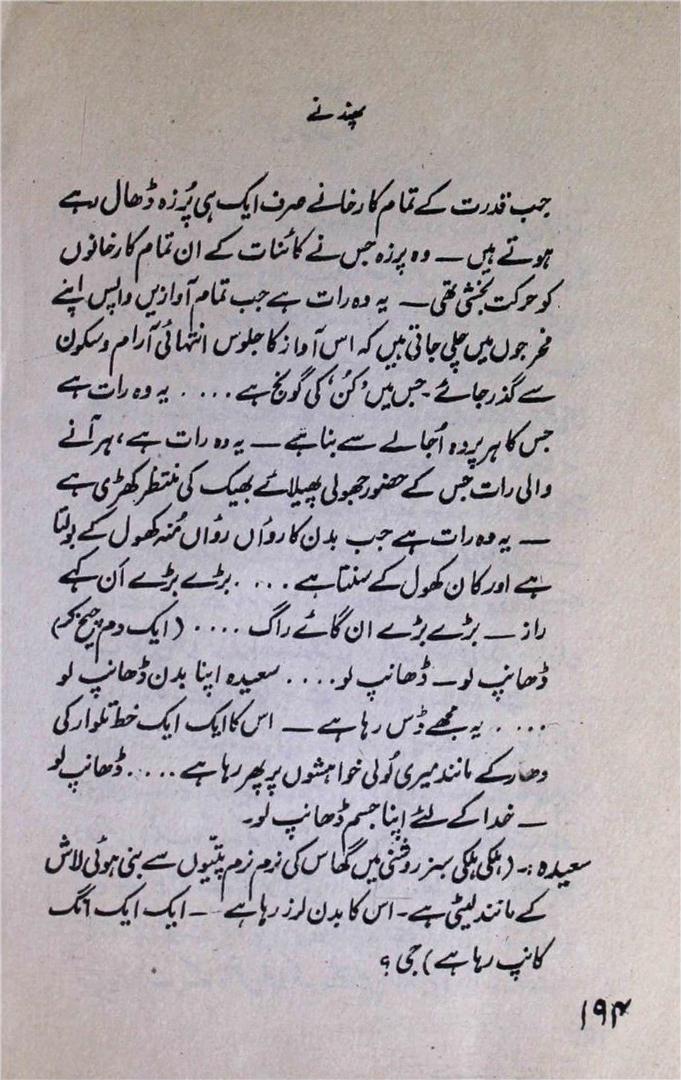 پھندنے
جب قدرت کے تمام کارخانے صرف ایک ہی پُرزہ ڈھال رہے
ہوتے ہیں — وہ پرزہ جس نے کائنات کے ان تمام کارخانوں
کو حرکت بخشی تھی — یہ وہ رات ہے جب تمام آوازیں واپس اپنے
مخرجوں میں چلی جاتی ہیں کہ اس آواز کا جلوس انتہائی آرام و سکون
سے گذر جائے۔ جس میں ’کُن‘ کی گونج ہے .... یہ وہ رات ہے
جس کا ہر پردہ اُجالے سے بنا ہے — یہ وہ رات ہے، ہر آنے
والی رات جس کے حضور جھولی پھیلائے بھیک کی منتظر کھڑی ہے
— یہ وہ رات ہے جب بدن کا رواں رواں مُنہ کھول کے بولتا
ہے اور کان کھول کے سنتا ہے .... بڑے بڑے اَن کہے
راز — بڑے بڑے ان گائے راگ .... (ایک دم چیخ کر)
ڈھانپ لو — ڈھانپ لو .... سعیدہ اپنا بدن ڈھانپ لو
.... یہ مجھے ڈس رہا ہے — اس کا ایک ایک خط تلوار کی
دھار کے مانند میری لُولی خواہشوں پر پھر رہا ہے .... ڈھانپ لو
— خدا کے لئے اپنا جسم ڈھانپ لو۔
سعیدہ :- (ہلکی ہلکی سبز روشنی میں گھاس کی نرم نرم پتّیوں سے بنی ہوئی لاش
کے مانند لیٹی ہے۔ اس کا بدن لرز رہا ہے — ایک ایک انگ
کانپ رہا ہے) جی؟
۱۹۴